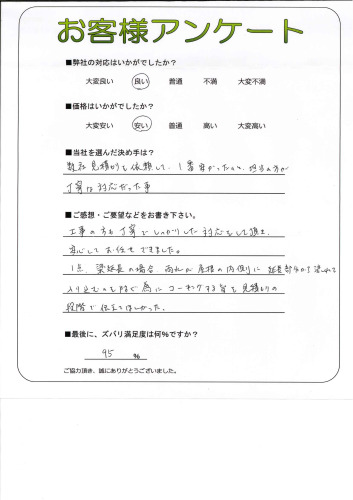 お客様アンケート
■弊社の対応はいかがでしたか？
大変良い 良い 普通 不満 大変不満
■価格はいかがでしたか？
大変安い 安い 普通 高い 大変高い
■当社を選んだ決め手は？
数社見積りを依頼して、1番安かったのと、担当の方が
丁寧な対応だった事
■ご感想・ご要望などをお書き下さい。
工事の方も丁寧でしっかりした対応をして頂き
安心してお任せできました。
1点、梁延長の場合 雨水が屋根の内側に 延長部分から流れて
入り込むのを防ぐ為にコーキングする旨を見積りの
段階で伝えてほしかった。
■最後に、ズバリ満足度は何%ですか？
95 %
ご協力頂き、誠にありがとうございました。